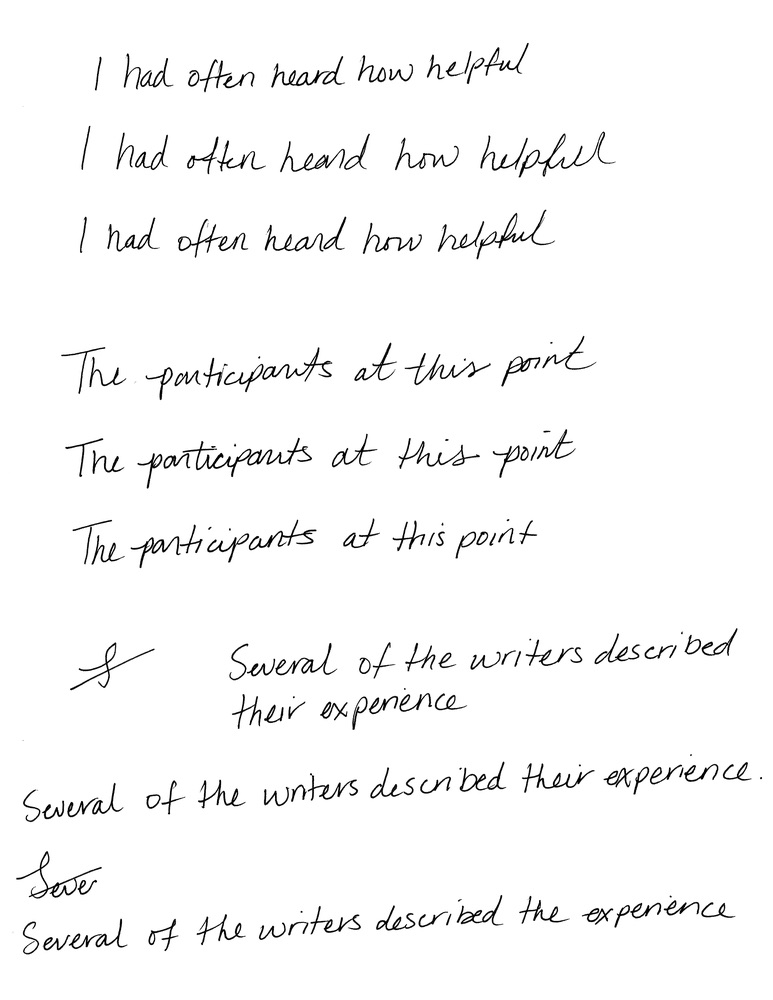 I had often heard how helpful
I had often heard how helpful
I had often heard how helpful
The participants at this point
The participants at this point
The participants at this point
Several of the writers described
their experience
Several of the writers described their experience.
Sever
Several of the writers described the experience